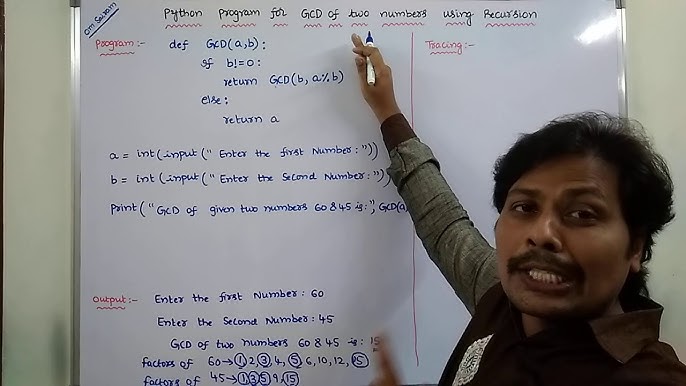 Om Sairam
Python Program for GCD of two numbers using Recursion
Program:-
def GCD(a,b):
if b!=0:
return GCD(b, a%b)
else:
return a
a = int(input("Enter the first Number:"))
b = int(input("Enter the Second Number:"))
Print("GCD of given two numbers 60 & 45 is:", GCD(a,
Output:- Enter the first Number: 60
Enter the Second Number: 45
GCD of two numbers 60 & 45 is: 15
factors of 60→1,2,3,4,5,6,10,12,15
factors of 45→1,3,5,9,15
Tracing:-